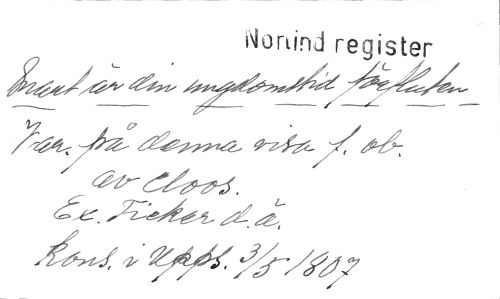 Norlind register
Snart är din ungdomstid förfluten
Var. på denna visa f. ob.
av Cloos.
Ex. Ficker d.ä.
Kons. i Upps. 3/5 1807